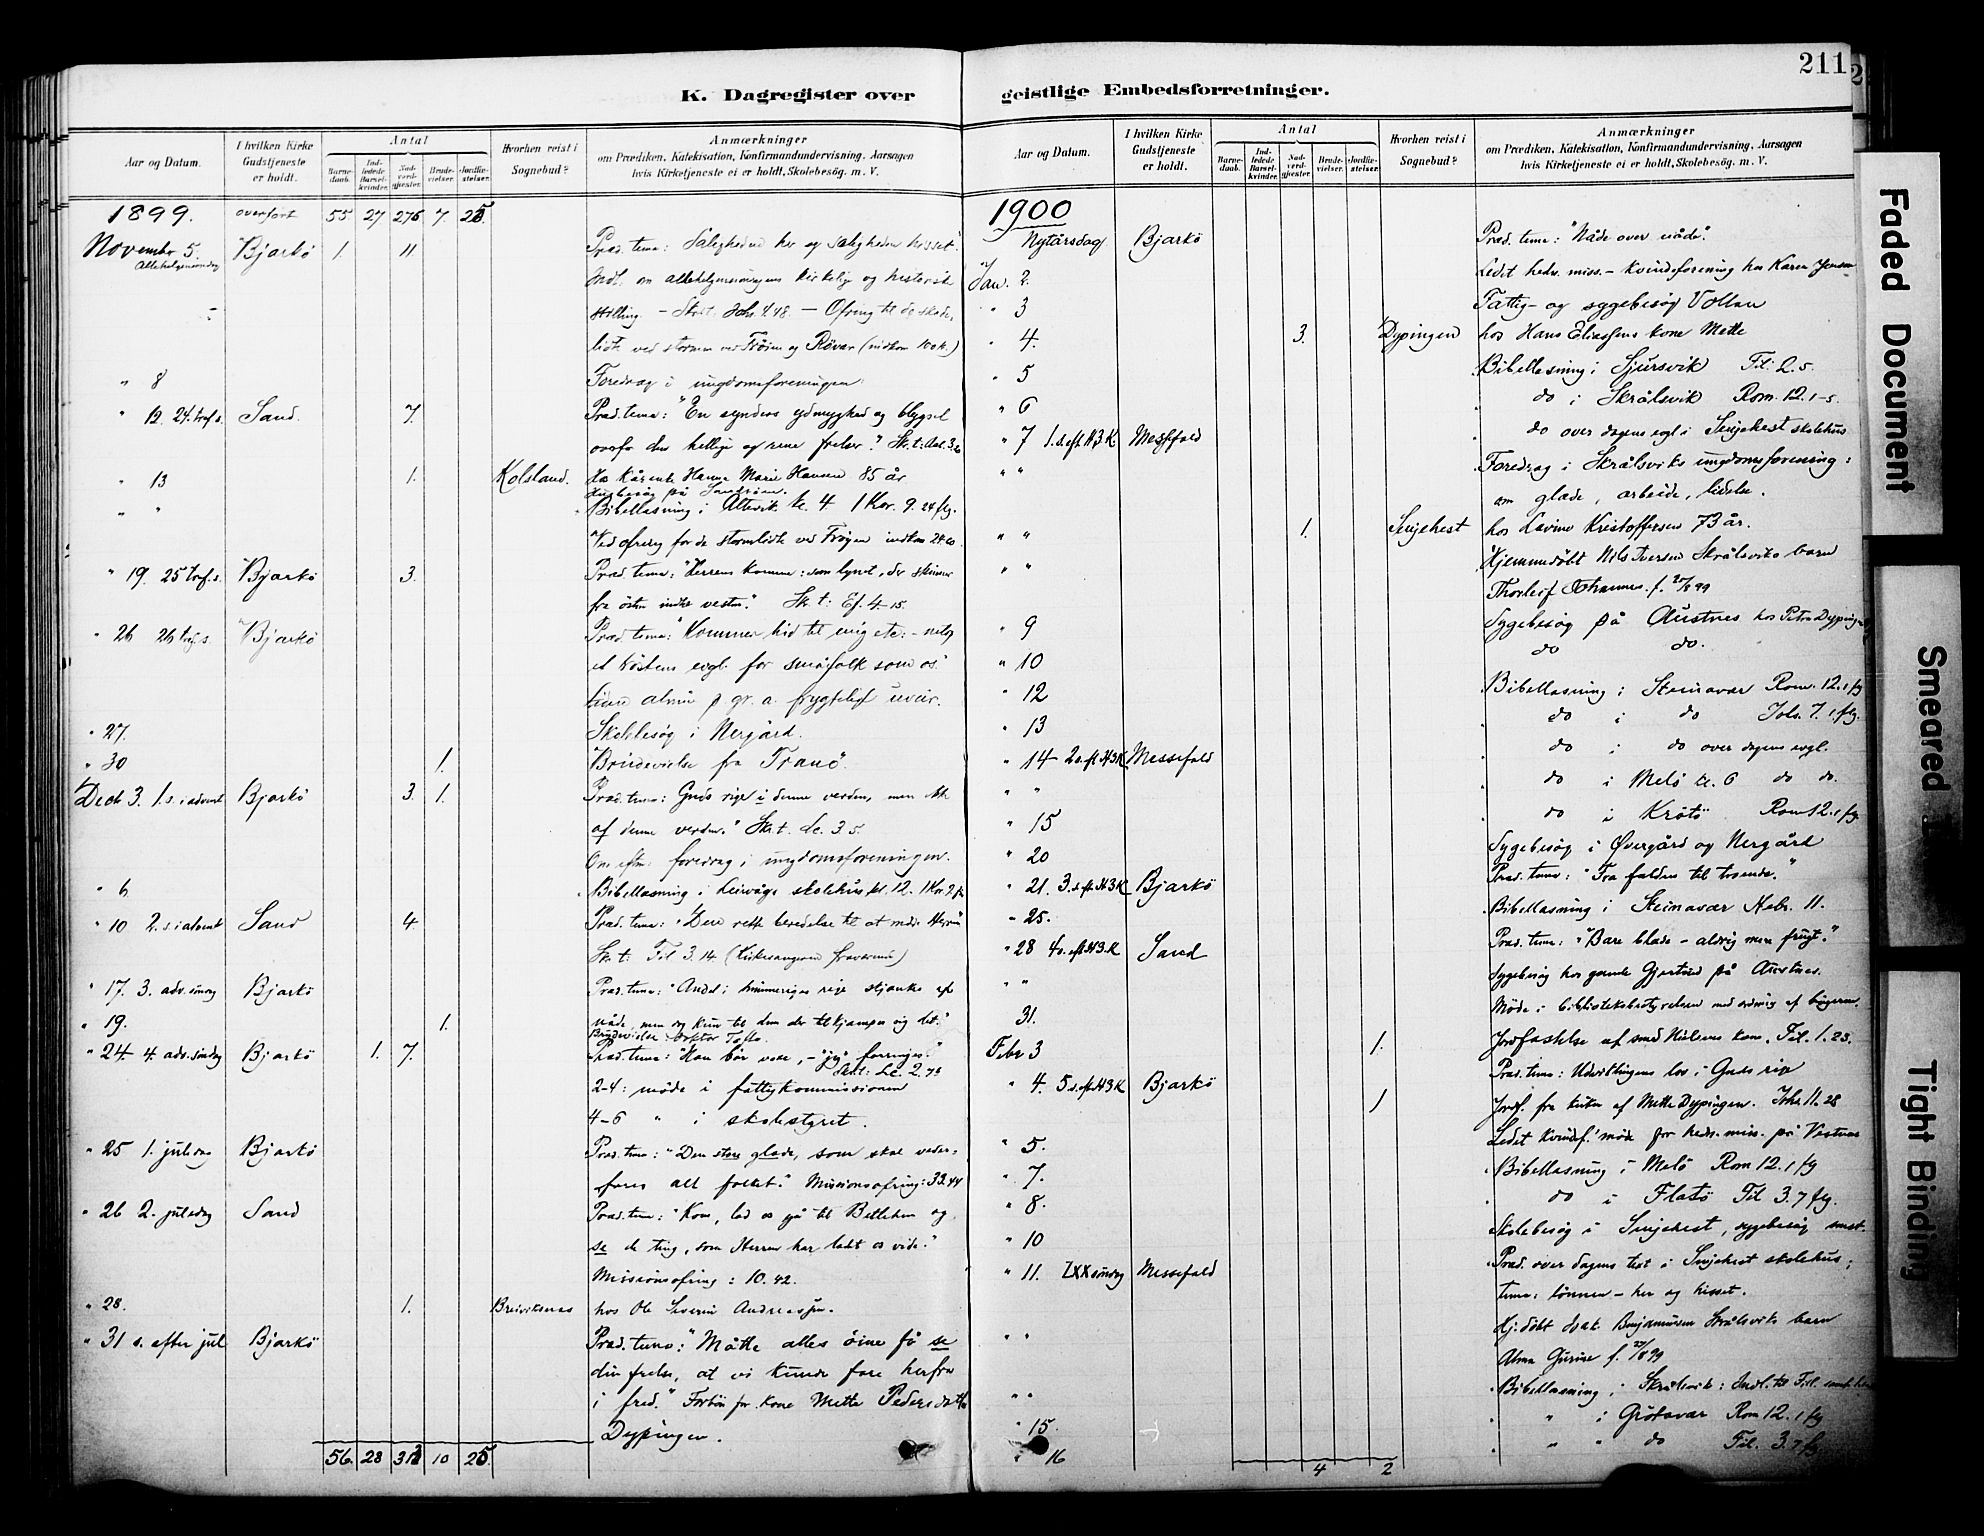 211
K. Dagregister over
geistlige Embedsforretninger.
Aar og Datum.
I hvilken Kirke Gudstjeneste er holdt.
Antal
Barnedaab.
Indledede Barselkvinder.
Nadverdgjester.
Brudevielser.
Jordfæstelser.
Hvorhen reist i Sognebud?
Anmærkninger
om Prædiken, Katekisation, Konfirmandundervisning, Aarsagen
hvis Kirketjeneste ei er holdt, Skolebesög. m. V.
1899. overført 55. 27 276 7. 25.
Novembr 5. Bjarkö 1. 11 Præd. tema: Saligheden her og saligheden hisset.
Allehelgensøndag
Indl. om allehelgenssøndagens kirkelige og historiske
stilling. - Skr.t. Joh. 9.48 - Ofring til de skade-
lidte ved stormen ved Frøien og Røvær (indkom 100 k.)
" 8 Foredrag i ungdomsforeningen.
" 12. 24. tref.s. Sand. 7. Præd. tema: "En synders ydmyghed og blygsel
overfor den hellige og rene frelser." Sk. t:
" 13 1. Kolsland. Hos kårenke Hanna Marie Hansen 85 år
Husbesøg på
" " Bibellæsning i Altevik kl. 4 1 Kor. 9. 24 flg.
Ved ofring for de stormlidte ved Frøyen indkom 24.60
" 19. 25 tref.s. Bjarkö 3. Præd. tema: "Herrens komme: som lynet, der skinner
fra østen indtil vesten." Sk. t: Ef. 4-15.
" 26 26 tref.s. Bjarkö Præd. tema: "Kommer hid til mig etc: - netop
et høstens evgl. for småfolk som os."
p. gr. a. frygteligt uveir.
" 27. Skolebesøg i Nergård.
" 30 1. Brudevielse fra Tranö.
Decbr 3. 1. s. i advent Bjarkö 3. 1. Præd. tema: Guds rige i denne verden, men ikke
af denne verden." Sk. t. Lc. 3 5.
Om eftm. foredrag i ungdomsforeningen.
" 6 Bibellæsning i Leivågs skolehus kl. 12. 1 Kor. 9 fl.
" 10 2. s. i advent Sand 4. Præd. tema: "Den rette beredelse til at møde Herren"
Sk. t: Fil 3. 14. (Kirkesangeren fraværende)
" 17. 3. adv. søndag Bjarkö Præd. tema: "Andel i himmeriges rige skjænkes af
nåde, men dog kun til den der tilkjæmper sig det."
" 19. 1. Brudevielse doktor Tofte.
" 24. 4. adv. søndag Bjarkö 1. 7. Præd. tema: "Han bør voxe, - "jeg" forringes."
2-4: møde i fattigkommissionen
4-6 " i skolestyret.
" 25 1. juledag Bjarkö Præd. tema: "Den store glæde, som skal veder-
fares alt folket." Missionsofring: 33.44
" 26 2. juledag Sand Præd. tema: "Kom, lad os gå til Betlehem og
se de ting, som Herren har ladt os vide."
Missionsofring: 10.42.
" 28. 1. Breiviksnæs hos Ole Severin Andreassen.
" 31 s. efter jul Bjarkö Præd. tema: "Måtte alles öine få se
din frelse, at vi kunde fare herfra
i fred." Forbön for kone Mette Pedersdatter
Dypingen.
56. 28 10 25
Aar og Datum.
I hvilken Kirke Gudstjeneste er holdt.
Antal
Barnedaab.
Indledede Barselkvinder.
Nadverdgjester.
Brudevielser.
Jordfæstelser.
Hvorhen reist i Sognebud?
Anmærkninger
om Prædiken, Katekisation, Konfirmandundervisning, Aarsagen
hvis Kirketjeneste ei er holdt, Skolebesög. m. V.
1900
Nytårsdag Bjarkö Præd. tema: "Nåde over nåde".
Jan. 2. Ledet hedn. miss.- kvindeforening hos Karen Jensen
" 3 Fattig- og sygebesøg Vollan
" 4. 3. Dypingen hos Hans Eliassens kone Mette
" 5 Bibellæsning i Sjursvik Fil. 2. 5.
" 6 do i Skrålsvik Rom. 12. 1-5.
" 7 1. s. eft. H3K. Messefald do over dagens evgl i Senjehest skolehus
" " Foredrag i Skrålsviks ungdomsforening:
om glæde, arbeide, lidelse.
" " 1. Senjehest hos Lavine Kristoffersen 73 år.
" " Hjemmedöbt Nils Iversen Skrålsviks barn
Thorleif Johannes. f.
" 9 Sygebesøg på Austnes hos Petra Dypingen
" 10 do do.
" 12 Bibellæsning i Steinavær Rom. 12. 1 flg
" 13 do i do Joh. 7. 1 flg.
" 14 2 s. eft H3K Messefald do i do over dagens evgl.
" " do i Melö kl. 6 do do.
" 15 do i Krötö Rom 12. 1 flg.
" 20 Sygebesög i Øvergård og Nergård
" 21. 3. s. eft H3K Bjarkö Præd. tema: "Fra falden til troende."
" 25. Bibellæsning i Steinavær Hebr. 11.
" 28 4 s. eft H3K Sand Præd. tema: "Bare blade - aldrig mere frugt."
" " Sygebesøg hos gamle Gjertrud på Austnes.
31. Möde i biblioteksbestyrelsen med ordning af bögerne.
Febr 3 1. Jordfæstelse af smed Nielsens kone. Fil. 1. 23.
" 4. 5 s. eft H3K Bjarkö Præd. tema: Udviklingens lov i Guds rige
1 Jordf. fra kirken af Mette Dypingen. Joh. 11. 28
" 5. Ledet kvindef. möde for hedn. miss. på Vestnes
" 7. Bibellæsning i Melö Rom 12. 1 flg
" 8. do i Flatö Fil 3. 7 flg.
" 10 Skolebesøg i Senjehest, sygebesøg smst.
" 11. LXX söndag Messefald Præd. over dagens text i Senjehest skolehus;
tema: lönnen - her og hisset.
" " Hj. döbt Isak Benjaminsen Skrålsviks barn
Alma Gurine f.
" " Bibellæsning i Skrålsvik: Indl. til Fil.
" 15. " i Grötavær Rom 12. 1 flg
" 16 " " do Fil. 3. 7 flg
4 2
Faded Document
Smeared I
Tight Binding